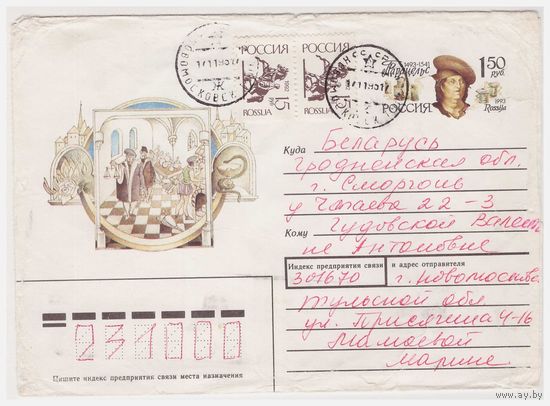 НОВОМОСКОВСК
Ж
РОССИЯ
15 руб.
1992
ROSSIJA
РОССИЯ
1992
ROSSIJA
1493-1541
Парацельс
1 50
руб.
РОССИЯ
1993
Rossija
Куда Беларусь
Гродненская обл.
г. Сморгонь
у Чапаева 22-3
Кому Гудовской
не Антоновне
Индекс предприятия связи и адрес отправителя
301670 г. Новомосков
Тульской обл
ул. Присягина 4-16
Мамаевой
Марине
231000
Пишите индекс предприятия связи места назначения
www.ay.by